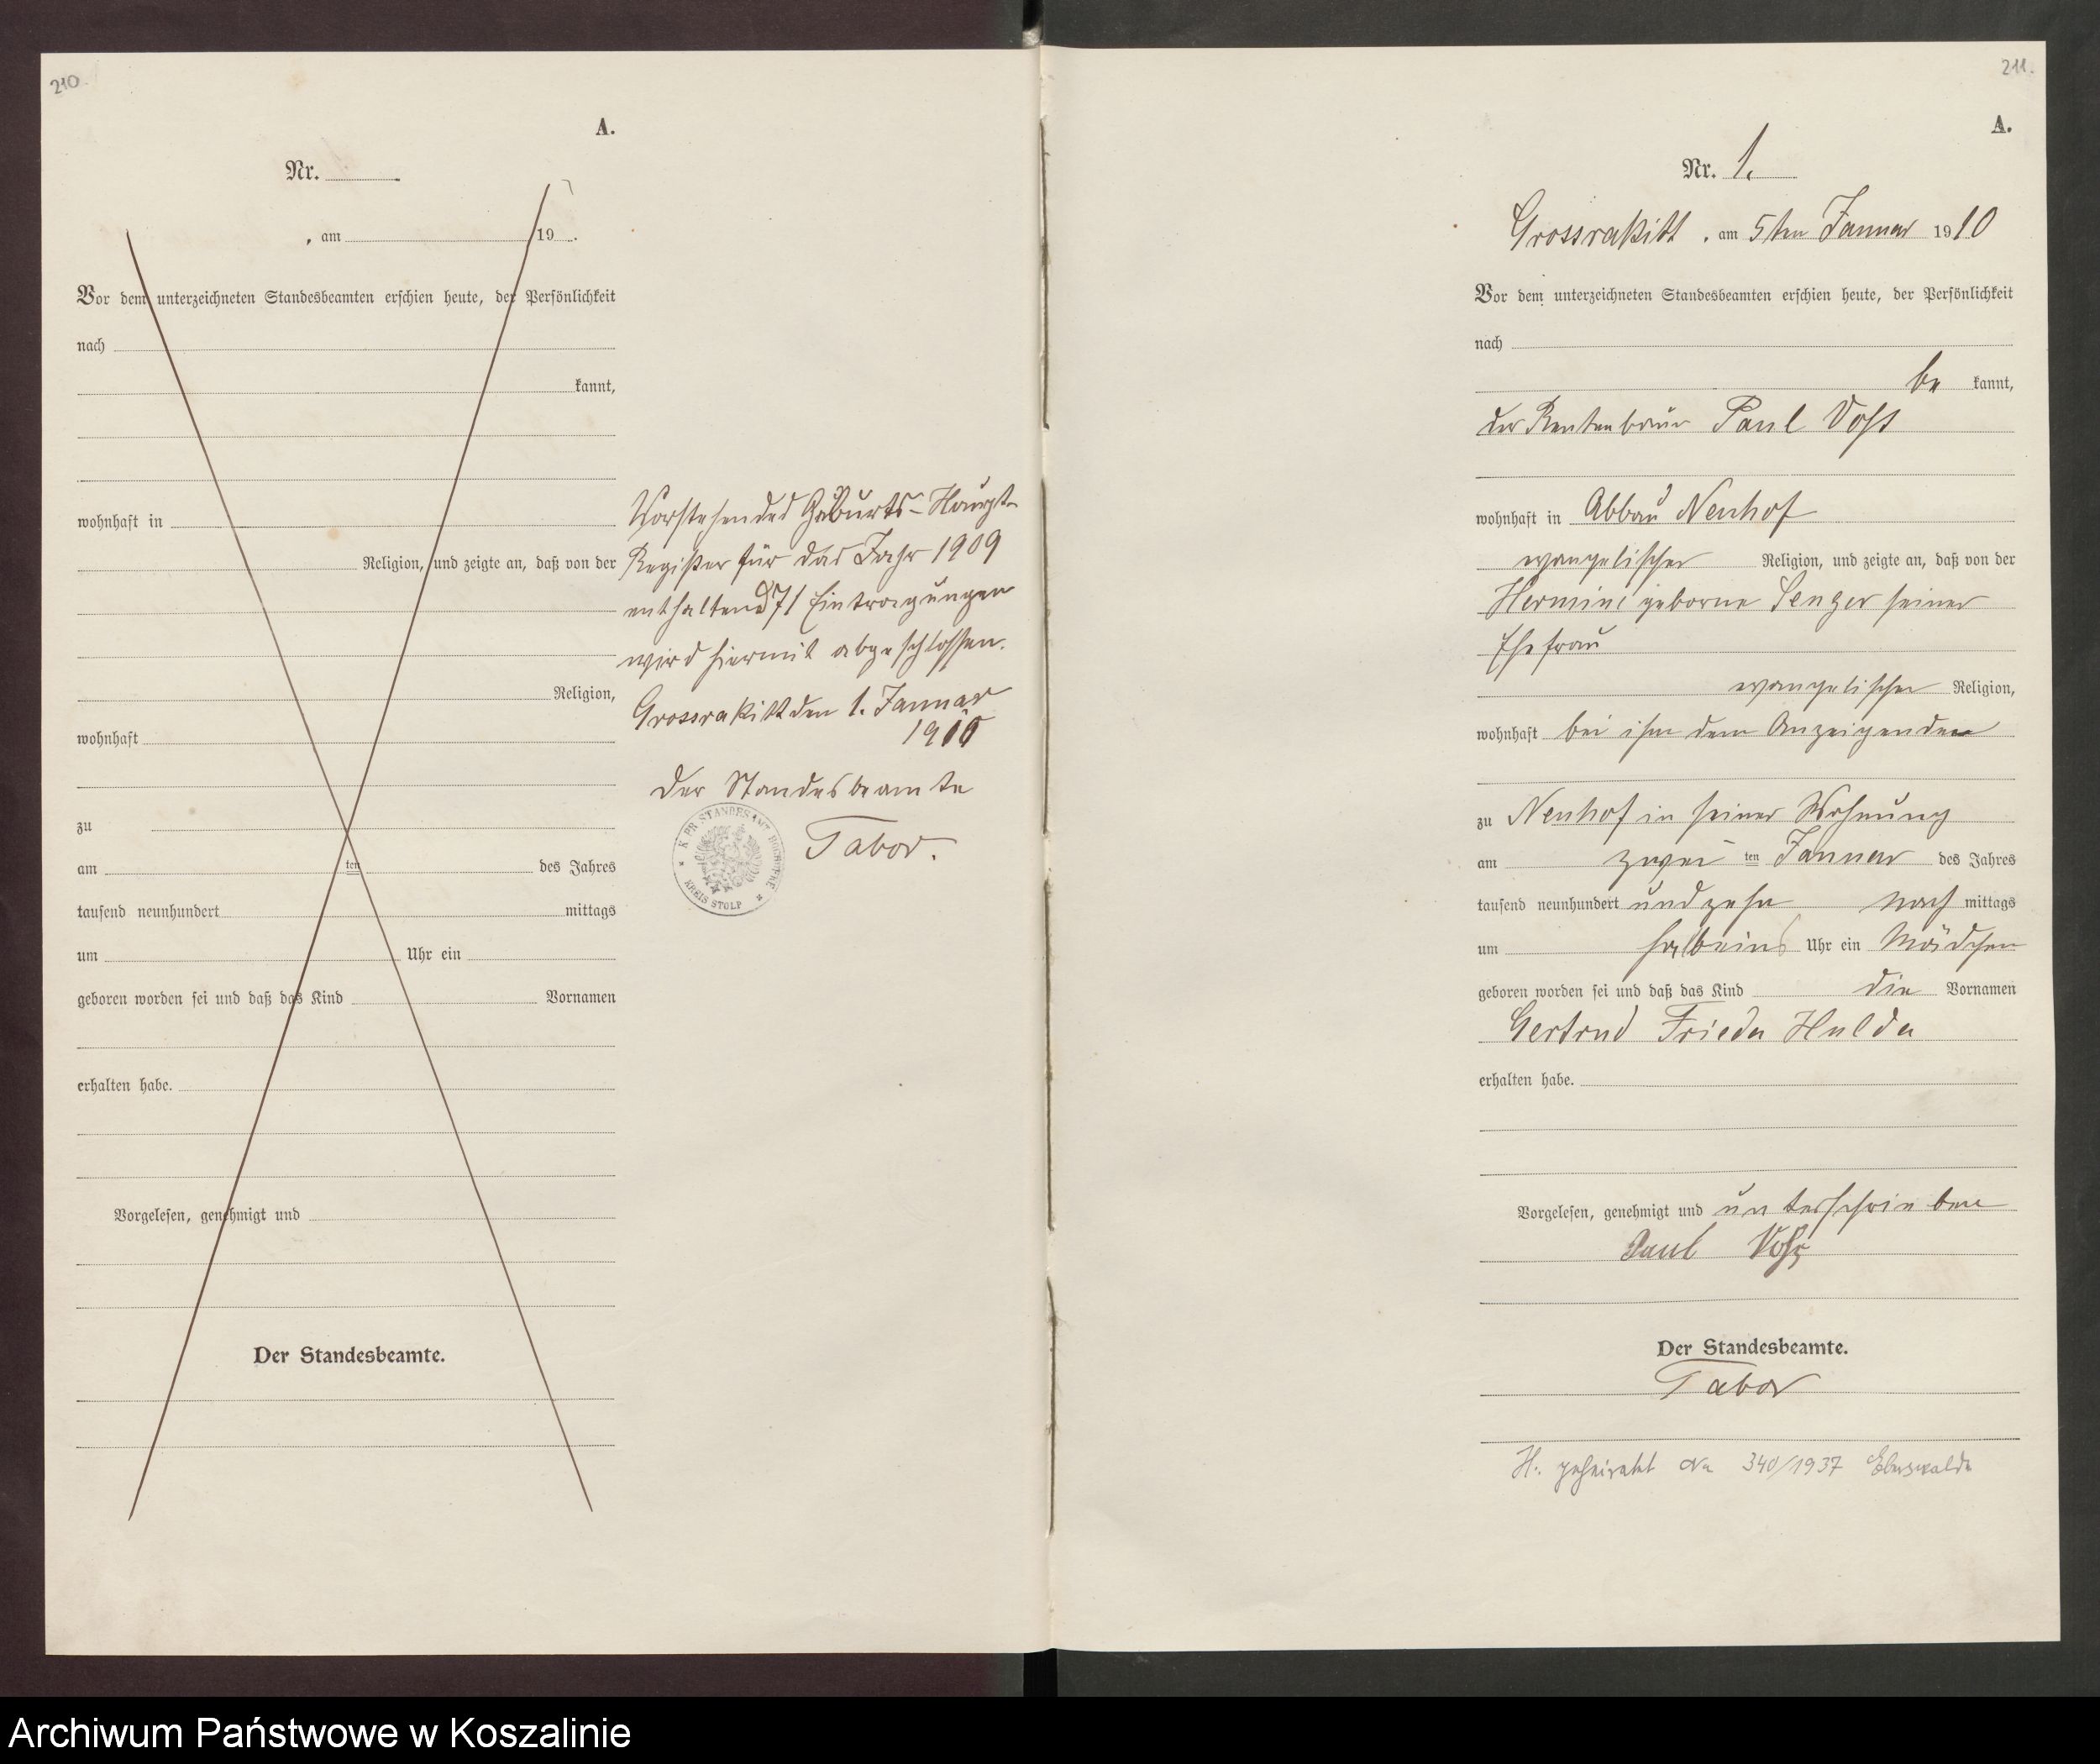 210.
A.
Nr.
, am 19 .
Vor dem unterzeichneten Standesbeamten erschien heute, der Persönlichkeit
nach
kannt,
wohnhaft in
Religion, und zeigte an, daß von der
Religion,
wohnhaft
zu
am ten des Jahres
tausend neunhundert mittags
um Uhr ein
geboren worden sei und daß das Kind Vornamen
erhalten habe.
Vorgelesen, genehmigt und
Der Standesbeamte.
Vorstehendes Geburts-Haupt-
Register für das Jahr 1909
enthaltend 71 Eintragungen
wird hiermit abgeschlossen.
Grossrakitt den 1. Januar
1910
Der Standesbeamte
Tabor.
K. PR. STANDESAMT
KREIS STOLP
211.
A.
Nr. 1.
Grossrakitt, am 5ten Januar 1910
Vor dem unterzeichneten Standesbeamten erschien heute, der Persönlichkeit
nach
be kannt,
der Rentenbauer Paul Voss
wohnhaft in Abbau Neuhof
evangelischer Religion, und zeigte an, daß von der
Hermine geborne Senger seiner
Ehefrau
evangelischer Religion,
wohnhaft bei ihm dem Anzeigenden
zu Neuhof in seiner Wohnung
am zwei ten Januar des Jahres
tausend neunhundert und zehn Nach mittags
um halb eins Uhr ein Mädchen
geboren worden sei und daß das Kind die Vornamen
Gertrud Frieda Hulda
erhalten habe.
Vorgelesen, genehmigt und unterschrieben
Paul Voß
Der Standesbeamte.
Tabor
H. geheiratet No 340/1937 Eberswalde
Archiwum Państwowe w Koszalinie